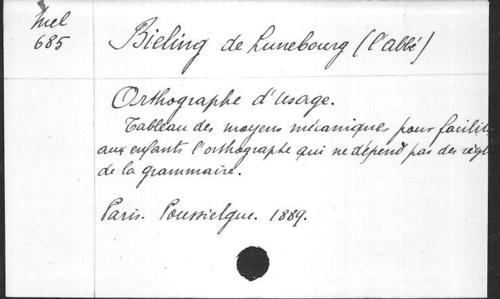 Mel
685
Bieling de Lunebourg (l'abbé)
Orthographe d'Usage.
Tableau des moyens mécaniques pour facilit
aux enfants l'orthographe qui ne dépend pas des règl
de la grammaire.
Paris. Poussielgue. 1889.